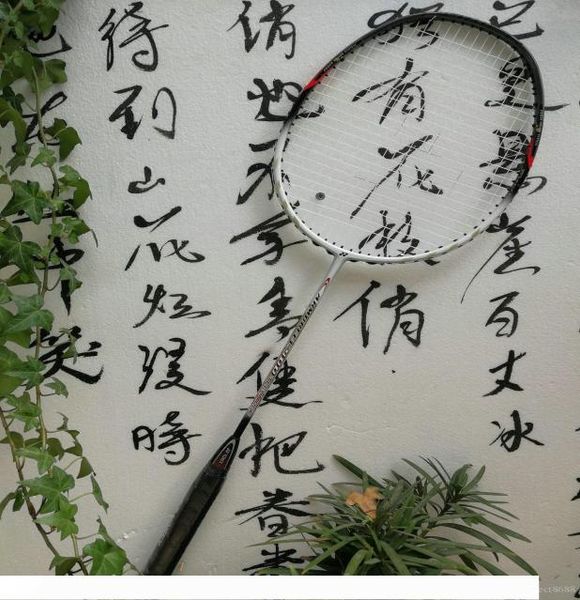 已是悬崖百丈冰
犹有花枝俏
俏也不争春隻把春
待到山花烂漫時
中笑